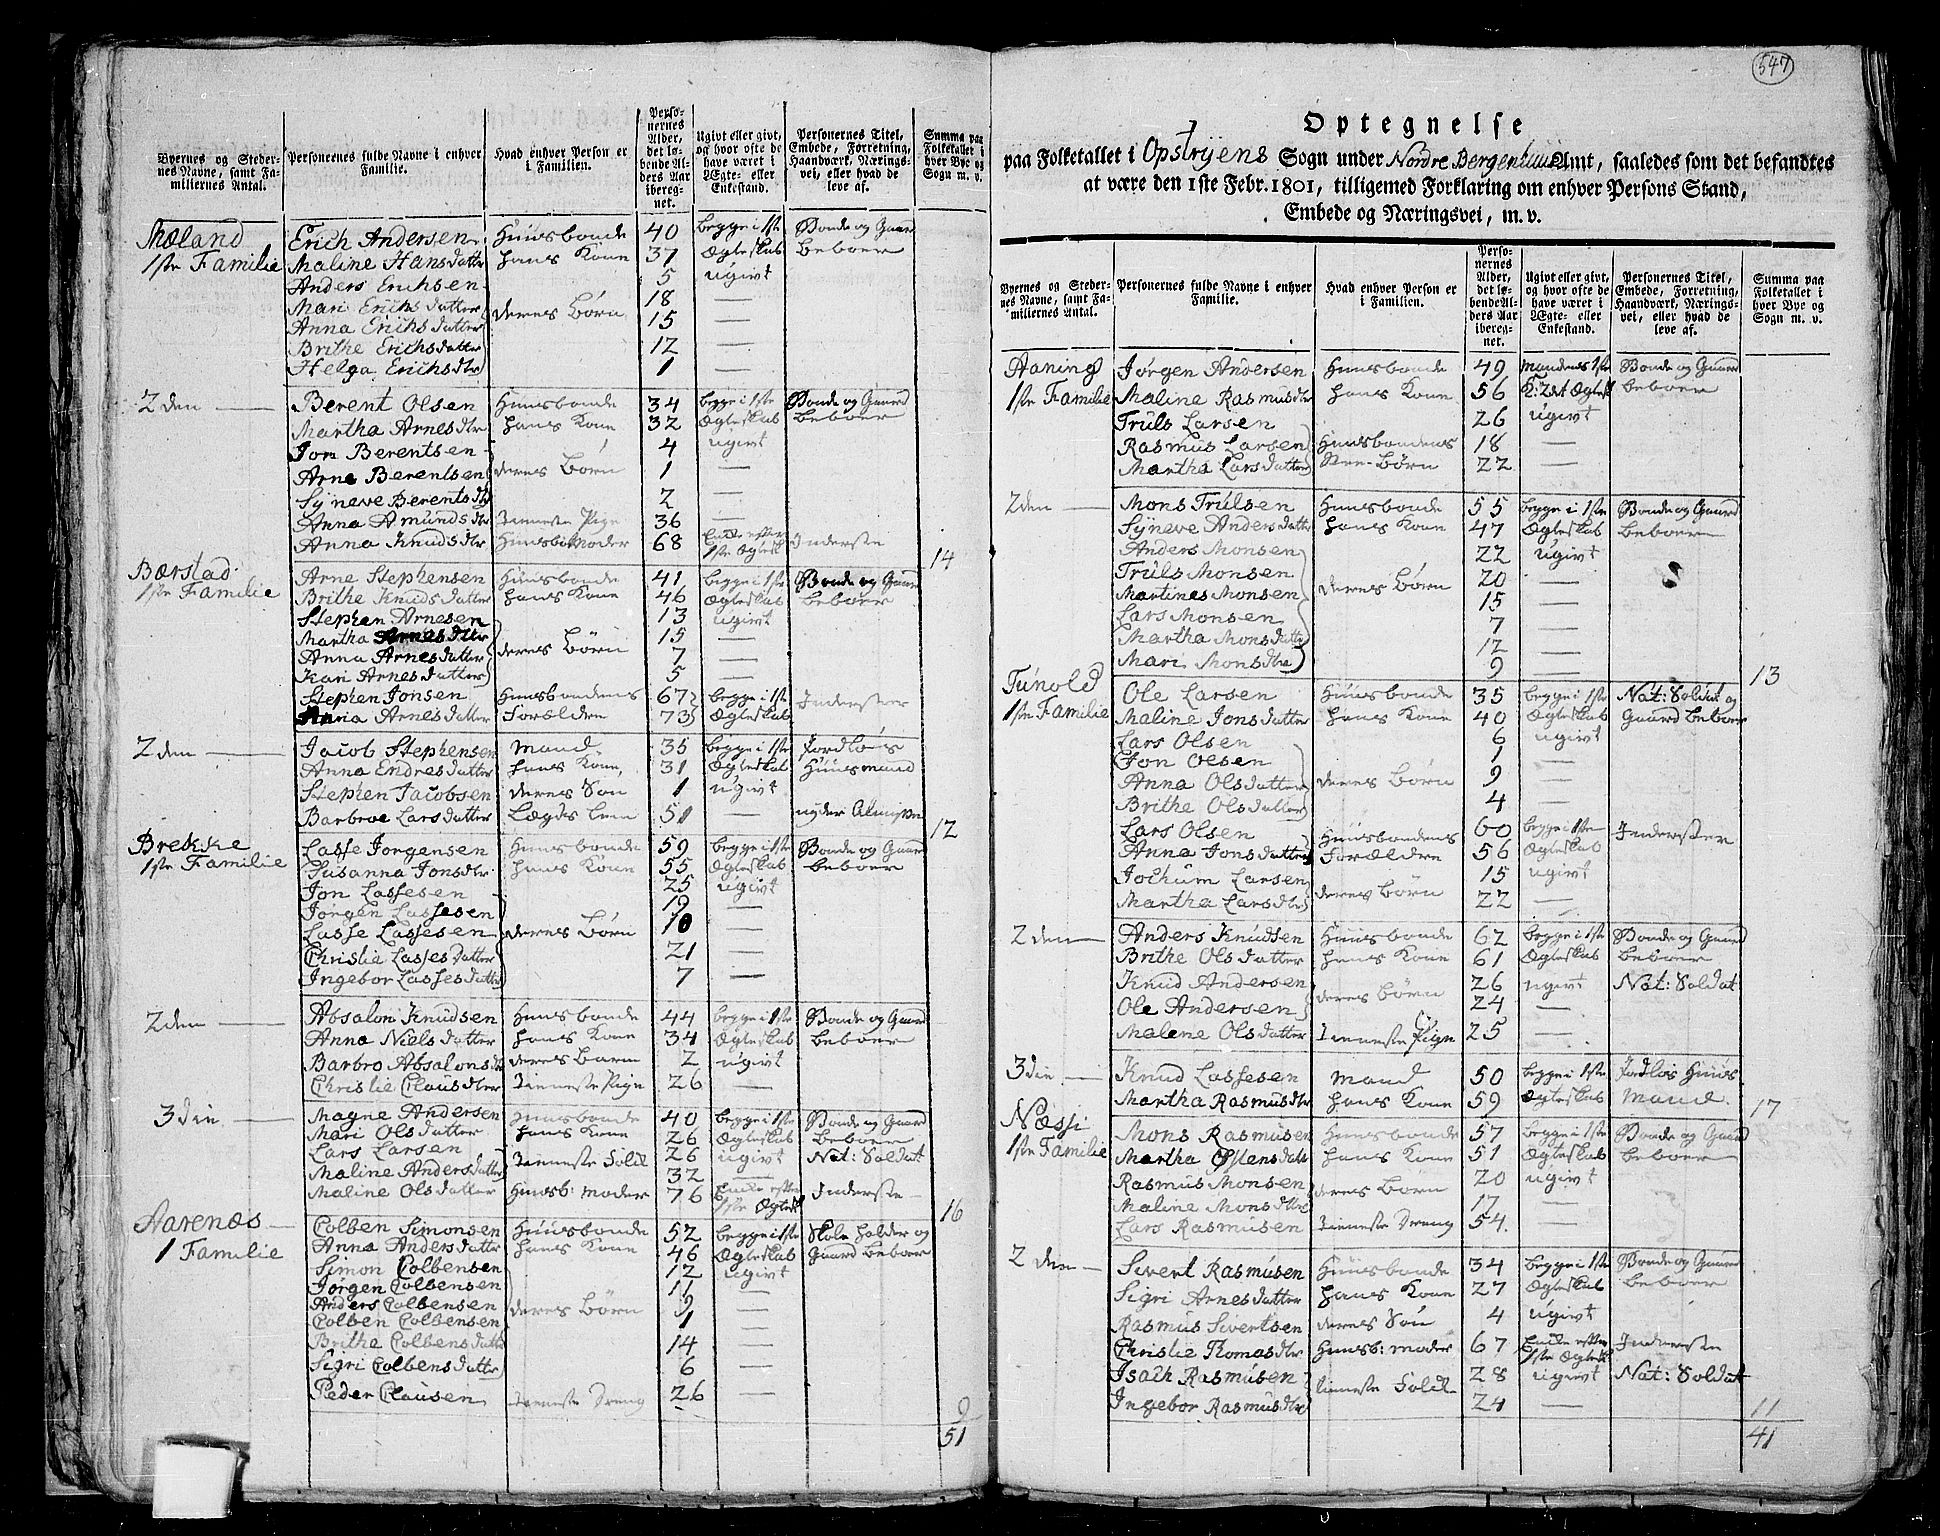 Byernes og Steder- Personernes fulde Navne i enhver Hvad enhver Person er Perso- Ugivt eller givt, Personernes Titel, Summa paa
nes Navne, samt Fa- Familie. i Familien. nernes og hvor ofte de Embede, Forretning, Folketallet i
miliernes Antal. Alder, have været i Haandværk, Nærings- hver Bye og
det lø- Ægte- eller vei, eller hvad de Sogn m. v.
bende Al- Enkestand. leve af.
ders Aar
iberegnet.
Mæland Erich Andersen Huusbonde 40 begge i 1ste Bonde og Gaard
1ste Familie Maline Hansdatter hans Kone 37 Ægteskab beboer
Anders Erichsen 5 ugivt
Mari Erichs datter deres Børn 18 —
Anna Erichs datter 15 —
Brithe Erichsdatter 12 —
Helga Erichsdtr 1 —
2den — Berent Olsen Huusbonde 34 begge i 1ste Bonde og Gaard
Martha Arnesdtr hans Kone 32 Ægteskab beboer
Jon Berentsen 4 ugivt
Arne Berentsen deres Børn 1 —
Syneve Berentsdtr 2 —
Anna Amundsdtr Tieneste Pige 36 —
Anna Knudsdtr Huusb: Moder 68 Enke efter 1ste Ægtesk Inderste 14
Bærstad Arne Stephensen Huusbonde 41 begge i 1ste Bonde og Gaard
1ste Familie Brithe Knudsdatter hans Kone 46 Ægteskab beboer
Stephen Arnesen 13 ugivt
Martha Arnesdtr deres Børn 15 —
Anna Arnesdatter 7 —
Kari Arnesdatter 5 —
Stephen Jonsen Huusbondens 67 begge i 1ste Inderster
Anna Arnesdatter Forældre 73 Ægteskab
2den — Jacob Stephensen Mand 35 begge i 1ste Jordløs
Anna Endresdatter hans Kone 31 Ægteskab Huusmand
Stephen Jacobsen deres Søn 1 ugivt
Barbroe Larsdatter Lægds Lem 51 — nyder Almisse 12
Brekke Lasse Jorgensen Huusbonde 59 begge i 1ste Bonde og Gaard
1ste Familie Susanna Jonsdtr hans Kone 55 Ægteskab beboer
Jon Lassesen 25 ugivt
Jorgen Lassesen 19 —
Lasse Lassesen deres Børn 10 —
Christie Lassesdatter 21 —
Ingebor Lassesdatter 7 —
2den — Absalon Knudsen Huusbonde 44 begge i 1ste Bonde og Gaard
Anna Nielsdatter hans Kone 34 Ægteskab beboer
Barbro Absalonsdtr deres Barn 2 ugivt
Christie Clausdtr Tieneste Pige 26 —
3die — Magne Andersen Huusbonde 40 begge i 1ste Bonde og Gaard
Mari Olsdatter hans Kone 26 Ægteskab beboer
Lars Larsen Tieneste Folk 26 ugivt Nat: Soldat
Maline Andersdatter 32 —
Maline Olsdatter Huusb: Moder 76 Enke efter 1ste Ægtesk Inderste 16
Aarenæs — Colben Simonsen Huusbonde 52 begge i 1ste Skole holder og
1 Familie Anna Andersdatter hans Kone 46 Ægteskab Gaard beboer
Simon Colbensen 12 ugivt
Jørgen Colbensen 11 —
Anders Colbensen deres Børn 9 —
Colben Colbensen 1 —
Brithe Colbensdatter 14 —
Sigri Colbensdatter 6 —
Peder Clausen Tieneste Dreng 26 — 9
51
547
Optegnelse
paa Folketallet i Opstryens Sogn under Nordre Bergenhuus Amt, saaledes som det befandtes
at være den 1ste Febr. 1801, tilligemed Forklaring om enhver Persons Stand,
Embede og Næringsvei, m. v.
Byernes og Steder- Personernes fulde Navne i enhver Hvad enhver Person er Perso- Ugivt eller givt, Personernes Titel, Summa paa
nes Navne, samt Fa- Familie. i Familien. nernes og hvor ofte de Embede, Forretning, Folketallet i
miliernes Antal. Alder, have været i Haandværk, Nærings- hver Bye og
det lø- Ægte- eller vei, eller hvad de Sogn m. v.
bende Al- Enkestand. leve af.
ders Aar
iberegnet.
Aaning Jørgen Andersen Huusbonde 49 Mandens 1ste Bonde og Gaard
1ste Familie Maline Rasmusdtr hans Kone 56 K: 2det Ægtesk beboer
Truls Larsen 26 ugivt
Rasmus Larsen Huusbondens 18 —
Martha Larsdatter Stee-Børn 22 —
2den — Mons Trulsen Huusbonde 55 begge i 1ste Bonde og Gaard
Syneve Andersdatter hans Kone 47 Ægteskab beboer
Anders Monsen 22 ugivt
Truls Monsen 20 —
Martines Monsen deres Børn 15 —
Lars Monsen 7 —
Martha Monsdatter 12 —
Mari Monsdtr 9 — 13
Tunold Ole Larsen Huusbonde 35 begge i 1ste Nat: Soldat og
1ste Familie Maline Jonsdatter hans Kone 40 Ægteskab Gaard beboer
Lars Olsen 6 ugivt
Jon Olsen 1 —
Anna Olsdatter deres Børn 9 —
Brithe Olsdatter 4 —
Lars Olsen Huusbondens 60 begge i 1ste Inderster
Anna Jonsdatter Forældre 56 Ægteskab
Jochum Larsen 15 ugivt
Martha Larsdtr deres Børn 22 —
2den — Anders Knudsen Huusbonde 62 begge i 1ste Bonde og Gaard
Brithe Olsdatter hans Kone 61 Ægteskab beboer
Knud Andersen deres Børn 26 ugivt Nat: Soldat
Ole Andersen 24 —
Malene Olsdatter Tieneste Pige 25 —
3die — Knud Lassesen Mand 50 begge i 1ste Jordløs Huus
Martha Rasmusdtr hans Kone 59 Ægteskab Mand 17
Næssi Mons Rasmusen Huusbonde 57 begge i 1ste Bonde og Gaard
1ste Familie Martha Ostensdatter hans Kone 51 Ægteskab beboer
Rasmus Monsen deres Børn 20 ugivt
Maline Monsdtr 17 —
Lars Rasmusen Tieneste Dreng 54 —
2den — Sivert Rasmusen Huusbonde 34 begge i 1ste Bonde og Gaard
Sigri Arnesdatter hans Kone 27 Ægteskab beboer
Rasmus Sivertsen deres Søn 4 ugivt
Christie Thomasdtr Huusb: moder 67 Enke efter 1ste Ægtesk Inderste
Isach Rasmusen Tieneste Folk 28 ugivt Nat: Soldat
Ingebor Rasmusdtr 24 — 11
41